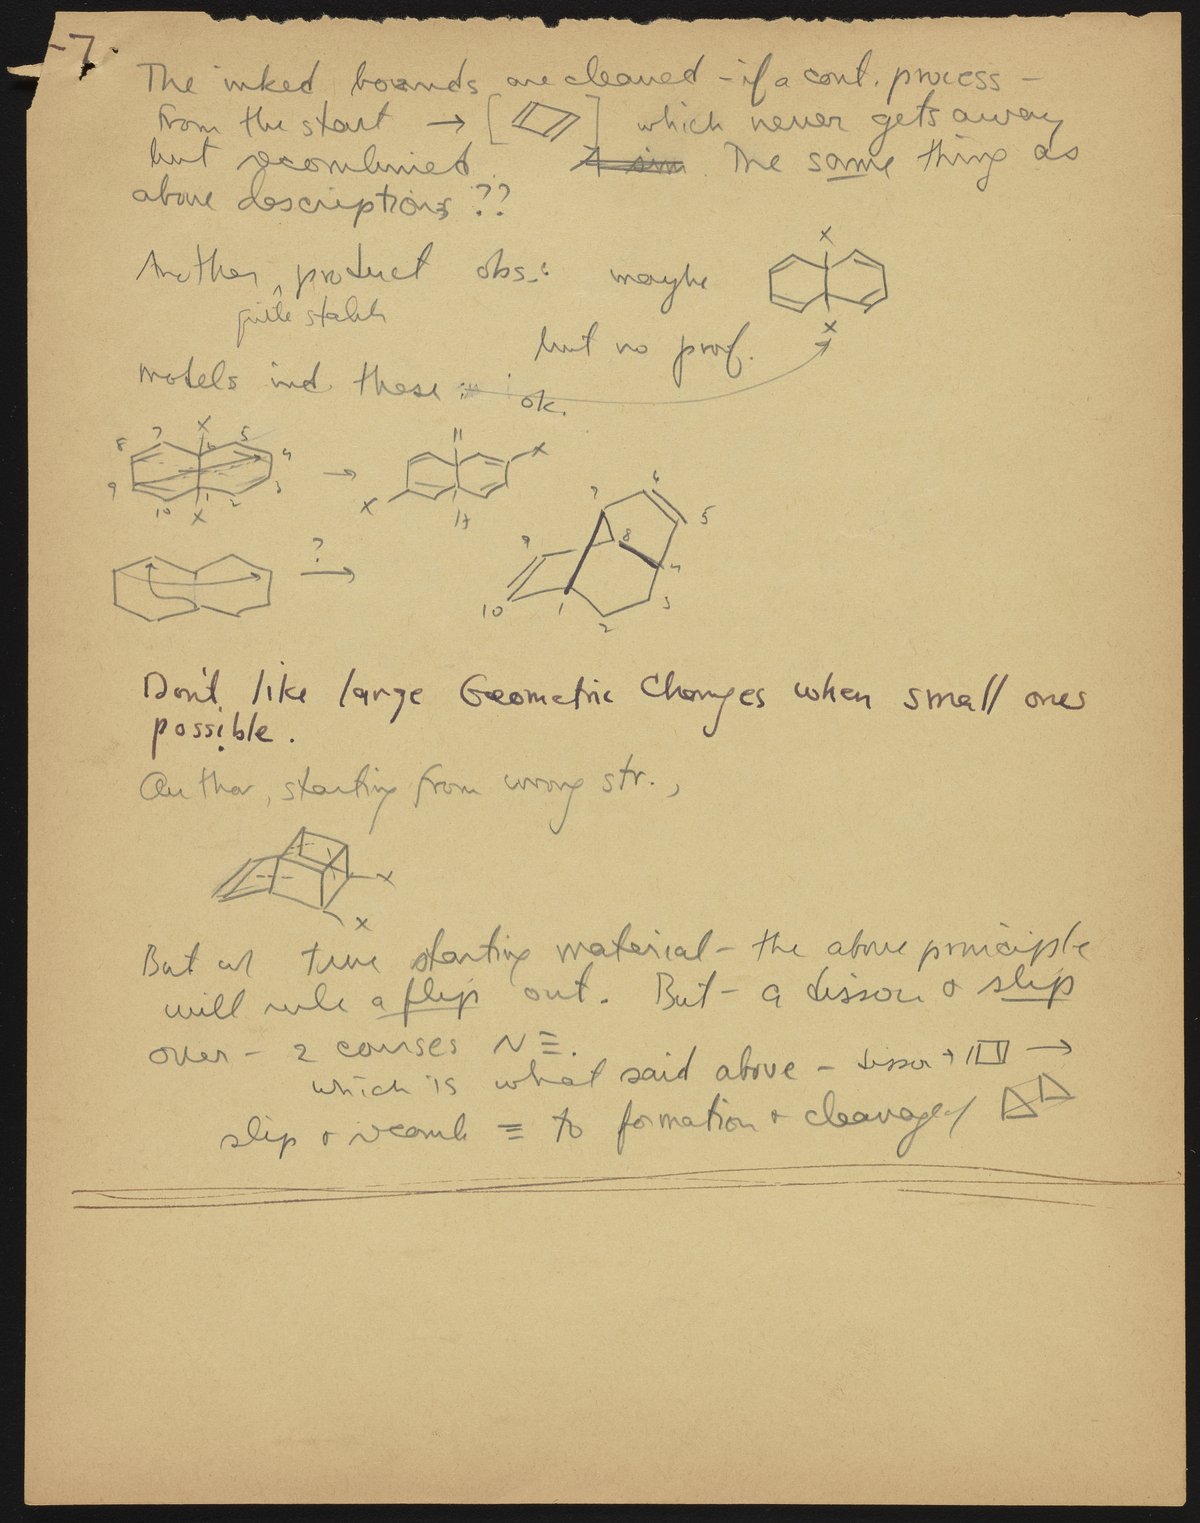 -7.
The inked bounds are cleaved - if a cont. process -
from the start → [ ] which never gets away
but recombined. A sim. The same thing as
above descriptions ??
Another product obs.: maybe
quite stable
X
X
but no proof.
models ind. these: ok.
8 7 X 6 5 4
9 10 X 1 2 3
→
H X
X H
?
→
7 6 5
9 8 4
10 1 2 3
Don't like large Geometric Changes when small ones
possible.
Author, starting from wrong str.,
X
X
But w/ true starting material - the above principle
will rule a flip out. But - a dissoc & slip
over - 2 courses N ≡.
which is what said above - dissoc → →
slip & recomb ≡ to formation & cleavage of